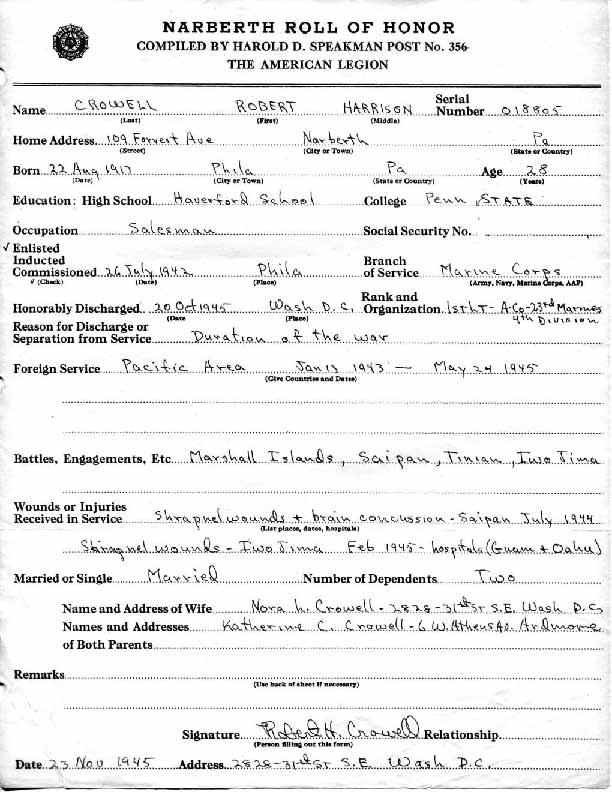 NARBERTH ROLL OF HONOR
COMPILED BY HAROLD D. SPEAKMAN POST No. 356
THE AMERICAN LEGION
Name CROWELL ROBERT HARRISON Serial Number 018805
(Last) (First) (Middle)
Home Address 109 Forrest Ave Narberth Pa
(Street) (City or Town) (State or Country)
Born 22 Aug 1917 Phila Pa Age 28
(Date) (City or Town) (State or Country) (Years)
Education: High School Haverford School College Penn STATE
Occupation Salesman Social Security No.
✓ Enlisted
Inducted Branch
Commissioned 26 July 1942 Phila of Service Marine Corps
# (Check) (Date) (Place) (Army, Navy, Marine Corps, AAF)
Honorably Discharged 20 Oct 1945 Wash D.C. Rank and Organization 1st LT - A-Co-23rd Marines
(Date (Place) 4th Division
Reason for Discharge or
Separation from Service Duration of the war
Foreign Service Pacific Area Jan 13 1943 — May 24 1945
(Give Countries and Dates)
Battles, Engagements, Etc Marshall Islands, Saipan, Tinian, Iwo Jima
Wounds or Injuries
Received in Service Shrapnel wounds + brain concussion - Saipan July 1944
(List places, dates, hospitals)
Shrapnel wounds - Iwo Jima Feb 1945 - hospitals (Guam + Oahu)
Married or Single Married Number of Dependents Two
Name and Address of Wife Nora h. Crowell - 2828-31st St S.E. Wash D.C.
Names and Addresses Katherine C. Crowell - 6 W. Athens Av. Ardmore
of Both Parents
Remarks
(Use back of sheet if necessary)
Signature Robert H. Crowell Relationship
(Person filling out this form)
Date 23 Nov 1945 Address 2828-31st St S.E. Wash D.C.